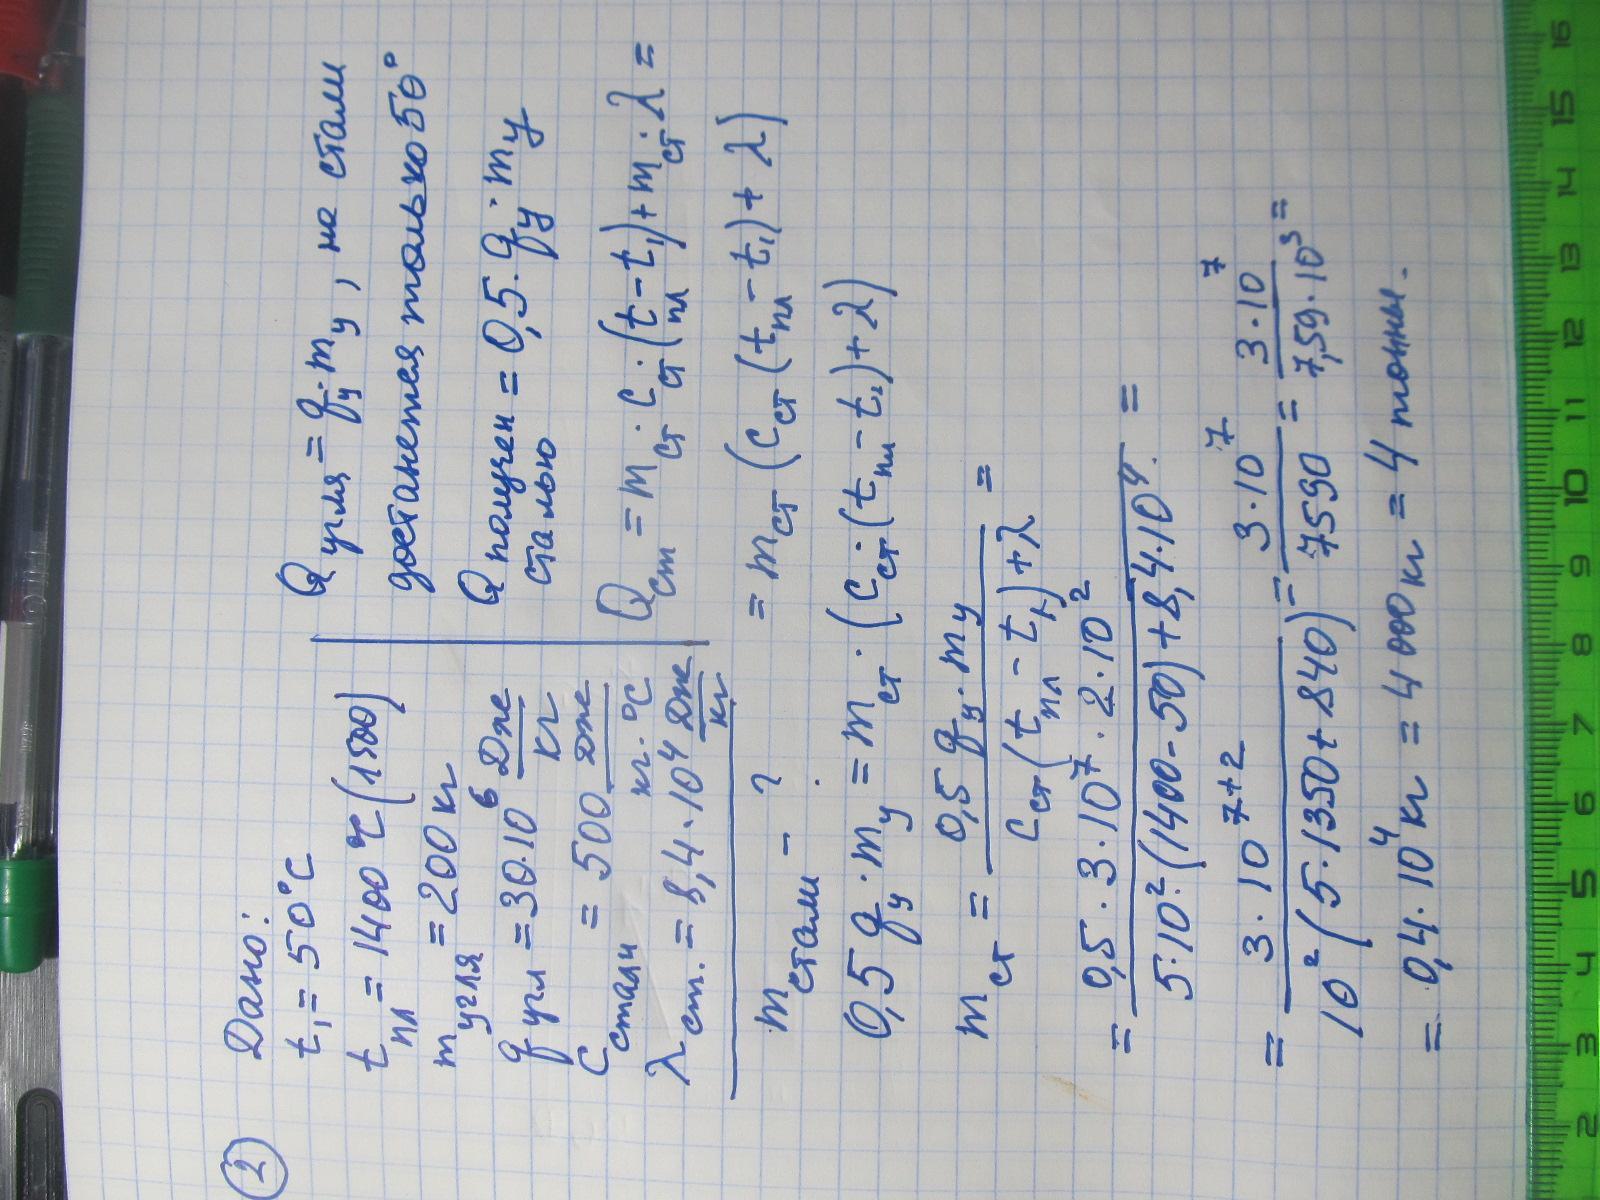 2
Дано:
t₁ = 50°C
tпл = 1400 °C (1500)
mугля = 200 кг
qугл = 30·10⁶ Дж/кг
Cстали = 500 Дж/кг·°C
λст. = 8,4·10⁴ Дж/кг
mстали - ?
Qугля = qу·mу, но стали
достанется только 50°
Qполучен сталью = 0,5·qу·mу
Qст = mст·Cст·(tпл - t₁) + mст·λ =
= mст (Cст (tпл - t₁) + λ)
0,5 qу·mу = mст·(Cст·(tпл - t₁) + λ)
mст = 0,5 qу·mу / Cст (tпл - t₁) + λ =
= 0,5·3·10⁷·2·10² / 5·10²·(1400-50) + 8,4·10⁴ =
= 3·10⁷⁺² / 10² (5·1350 + 840) = 3·10⁷ / 7590 = 3·10⁷ / 7,59·10³ =
= 0,4·10⁴ кг = 4000 кг = 4 тонны.
2 3 4 5 6 7 8 9 10 11 12 13 14 15 16